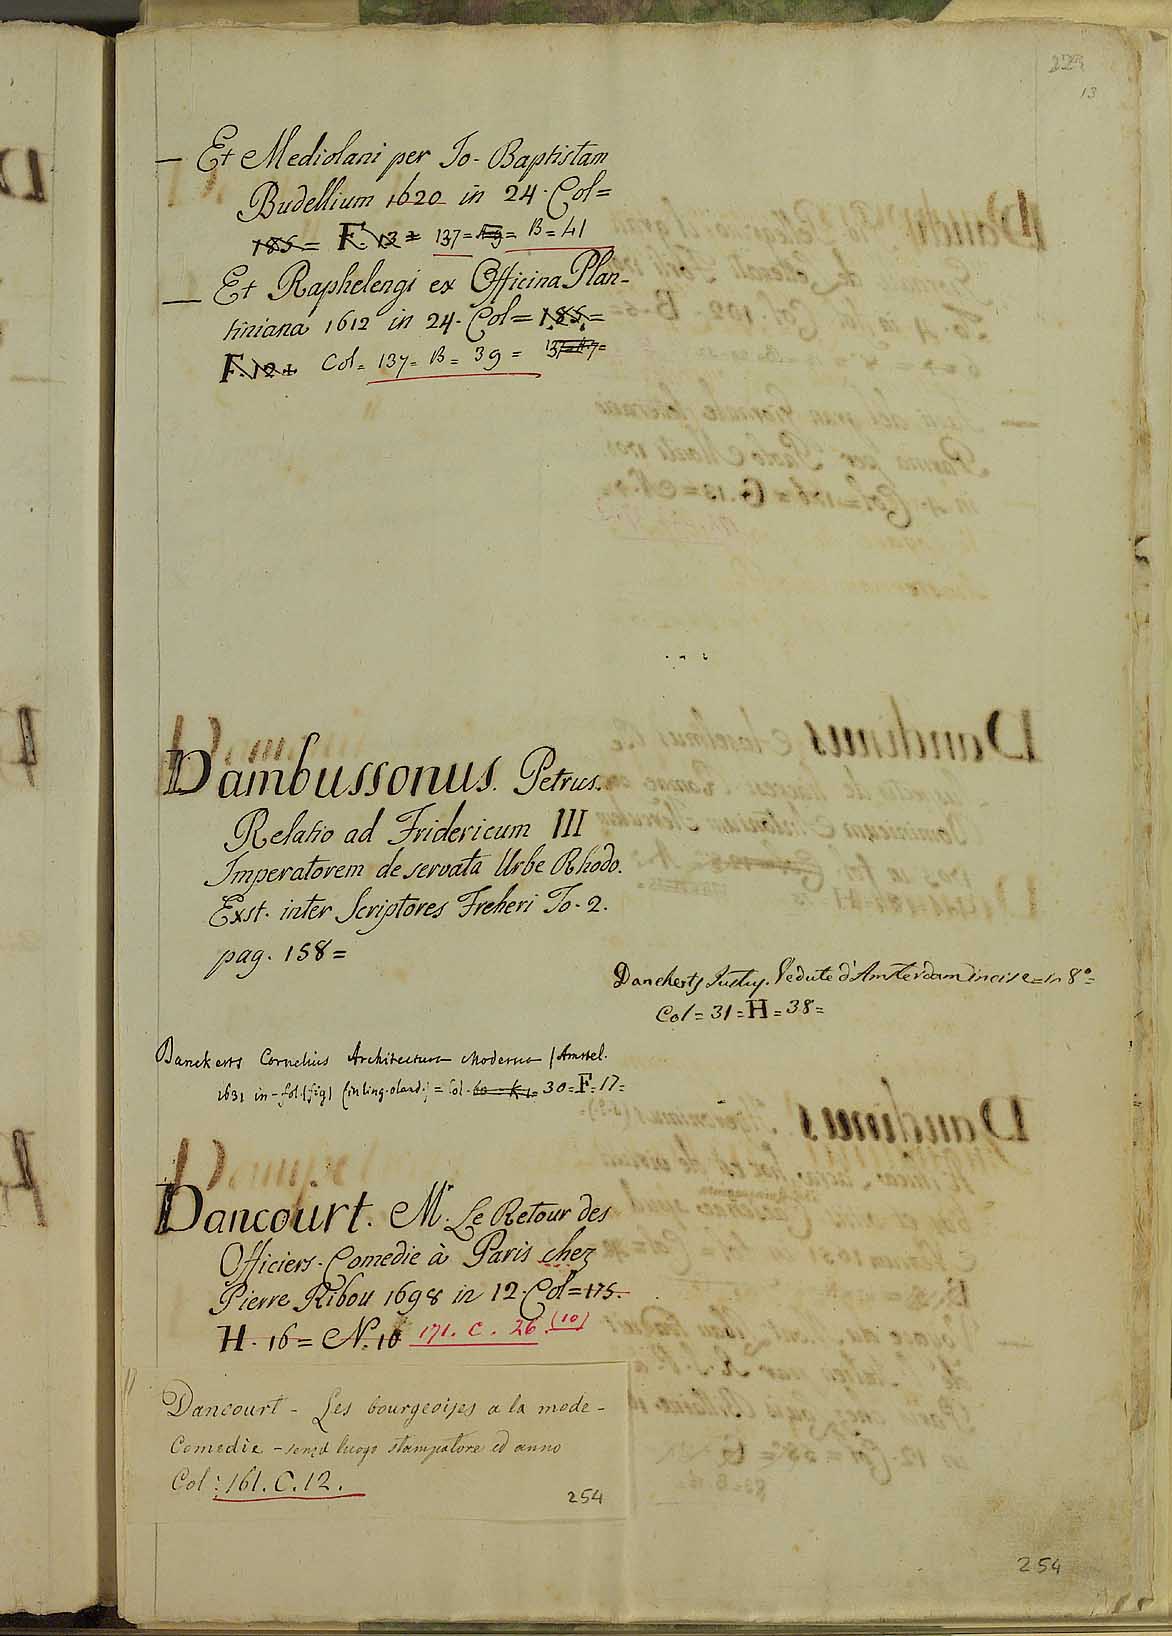 13
— Et Mediolani per Io. Baptistam
Budellium 1620 in 24. Col=
185= F. 13= 137= B= 41
— Et Raphelengi ex Officina Plan-
tiniana 1612 in 24. Col= 185=
F. 12 Col= 137= B= 39=
Dambussonus. Petrus.
Relatio ad Fridericum III
Imperatorem de servata Urbe Rhodo.
Exst. inter Scriptores Freheri To. 2.
pag. 158=
Danckerts Justus. Vedute d'Amsterdam incise= in 8°=
Col= 31= H= 38=
Danckerts Cornelius Architectura Moderna / Amstel.
1631 in-fol. (fig) (in ling. oland.) = Col. 60= K 1= 30= F. 17=
Dancourt. Mr. Le Retour des
Officiers. Comedie à Paris chez
Pierre Ribou 1698 in 12. Col= 175.
H. 16= N. 10 171. C. 26. (10)
Dancourt - Les bourgeoises a la mode -
Comedie - senza luogo stampatore ed anno
Col: 161. C. 12.
254
254